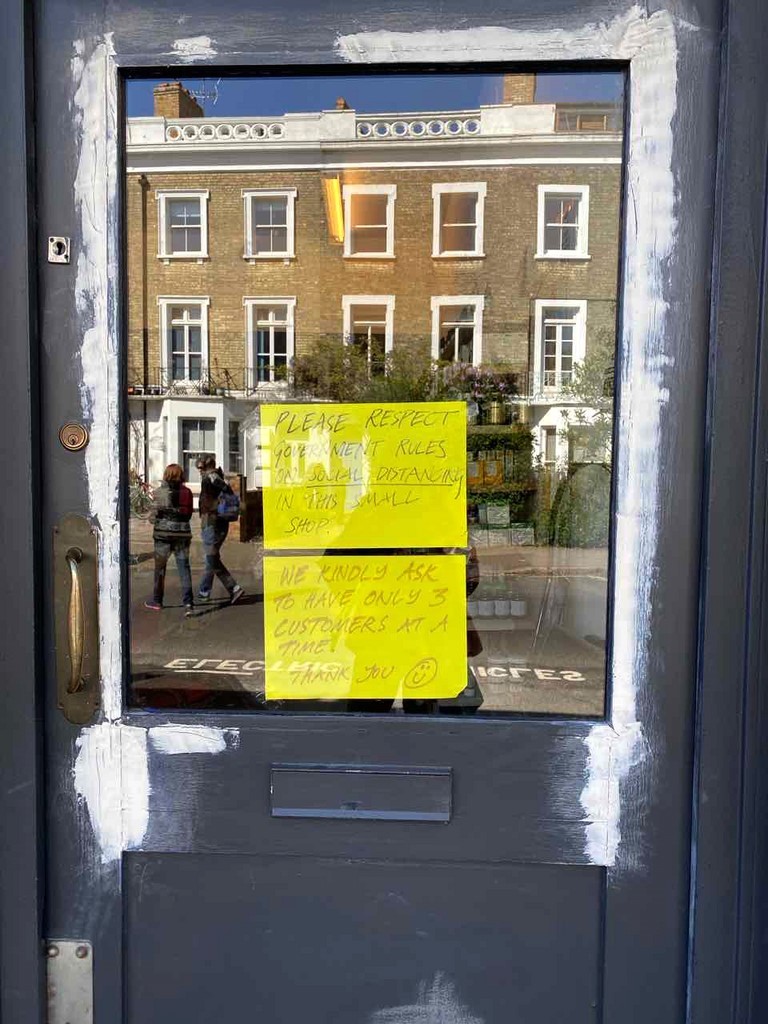 PLEASE RESPECT
GOVERNMENT RULES
ON SOCIAL DISTANCING
IN THIS SMALL
SHOP.
WE KINDLY ASK
TO HAVE ONLY 3
CUSTOMERS AT A
TIME!
THANK YOU ☺
ELECTRIC
ICLES